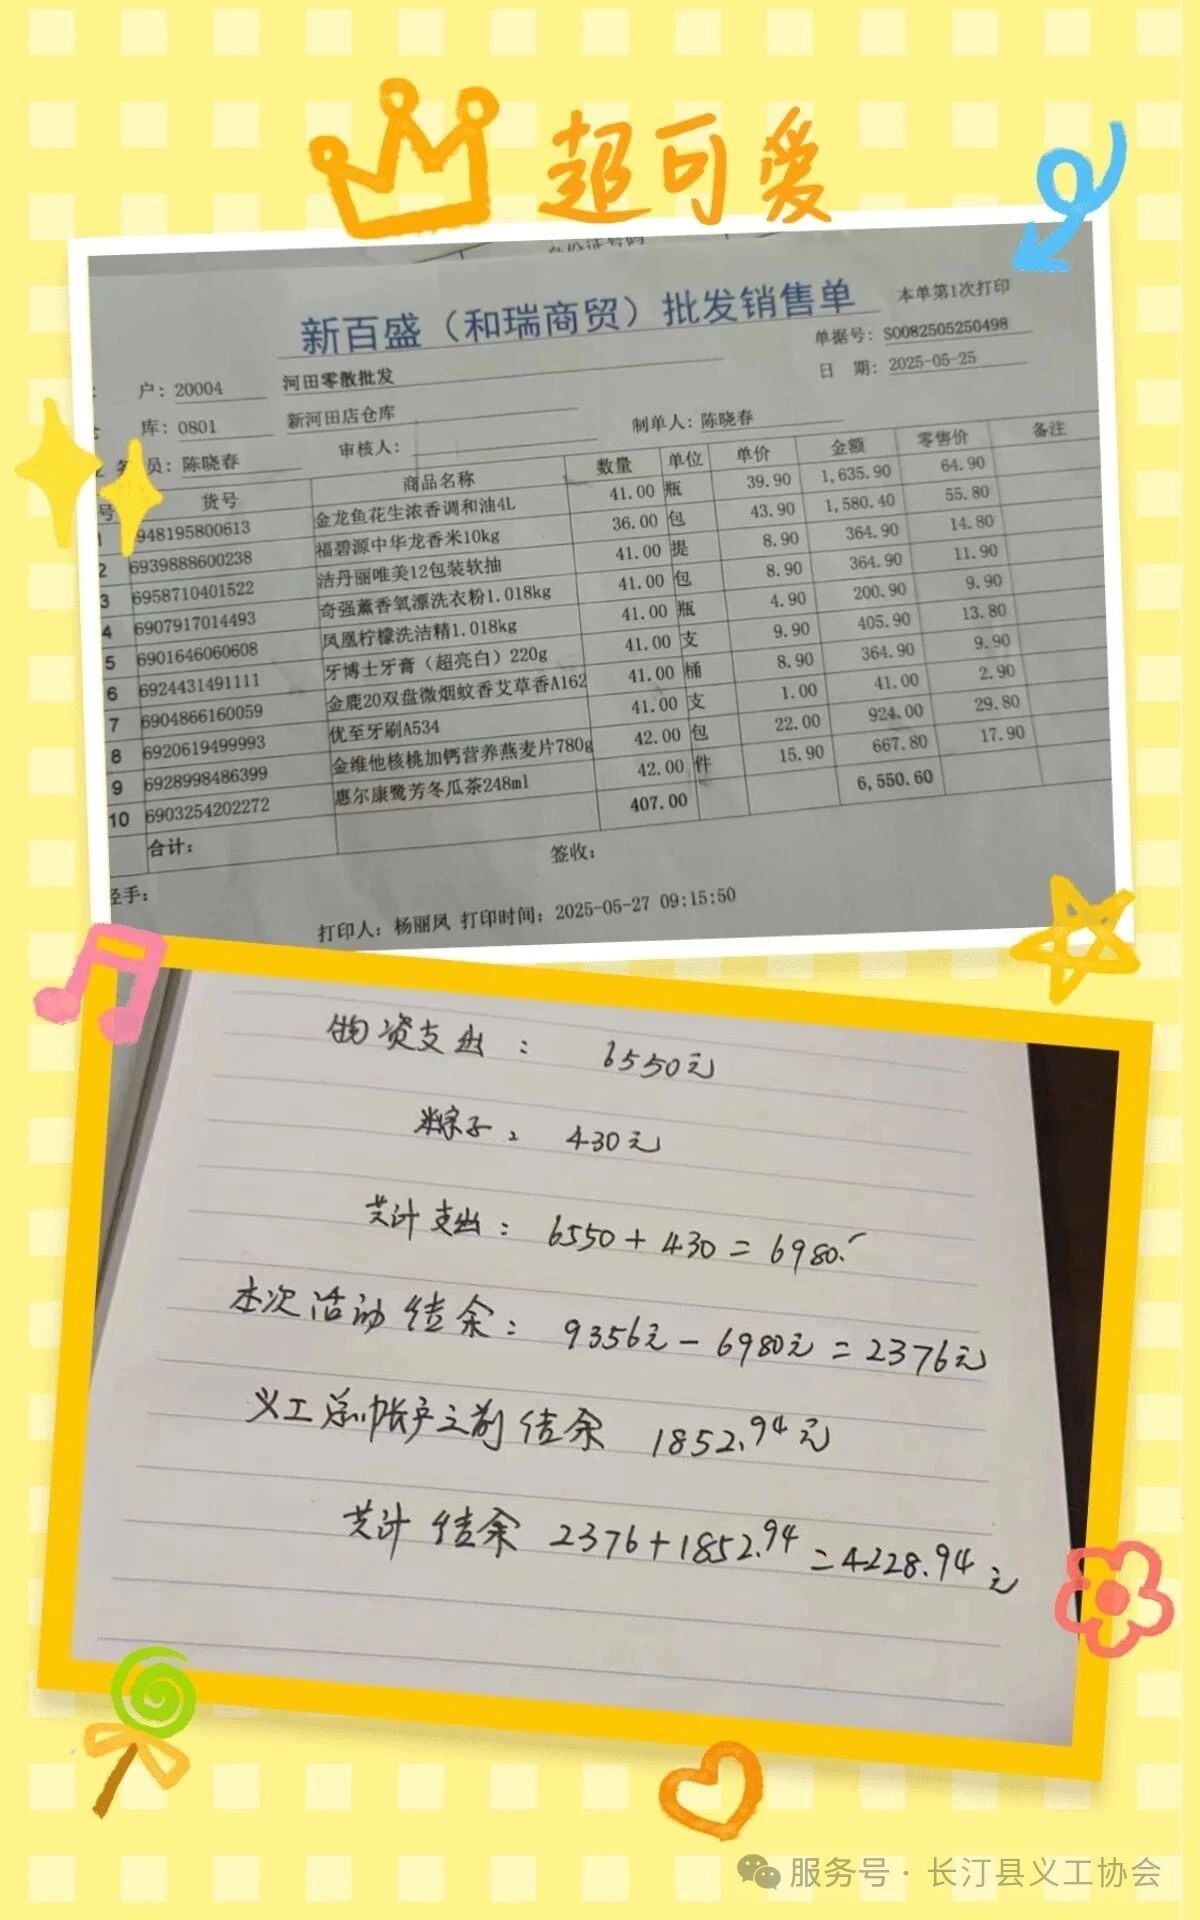 超可爱
身份证号码
新百盛（和瑞商贸）批发销售单
本单第1次打印
单据号：SO082505250498
户：20004 河田零散批发
日 期：2025-05-25
库：0801 新河田店仓库
制单人：陈晓春
员：陈晓春 审核人：
号 货号 商品名称 数量 单位 单价 金额 零售价 备注
1 6948195800613 金龙鱼花生浓香调和油4L 41.00 瓶 39.90 1,635.90 64.90
2 6939888600238 福碧源中华龙香米10kg 36.00 包 43.90 1,580.40 55.80
3 6958710401522 洁丹丽唯美12包装软抽 41.00 提 8.90 364.90 14.80
4 6907917014493 奇强薰香氧漂洗衣粉1.018kg 41.00 包 8.90 364.90 11.90
5 6901646060608 凤凰柠檬洗洁精1.018kg 41.00 瓶 4.90 200.90 9.90
6 6924431491111 牙博士牙膏（超亮白）220g 41.00 支 9.90 405.90 13.80
7 6904866160059 金鹿20双盘微烟蚊香艾草香A162 41.00 桶 8.90 364.90 9.90
8 6920619499993 优至牙刷A534 41.00 支 1.00 41.00 2.90
9 6928998486399 金维他核桃加钙营养燕麦片780g 42.00 包 22.00 924.00 29.80
10 6903254202272 惠尔康鹭芳冬瓜茶248ml 42.00 件 15.90 667.80 17.90
合计： 407.00 6,550.60
经手： 签收：
打印人：杨丽凤 打印时间：2025-05-27 09:15:50
物资支出： 6550元
粽子： 430元
共计支出：6550+430=6980.
本次活动结余：9356元-6980元=2376元
义工总帐户之前结余 1852.94元
共计结余 2376+1852.94=4228.94元
服务号·长汀县义工协会